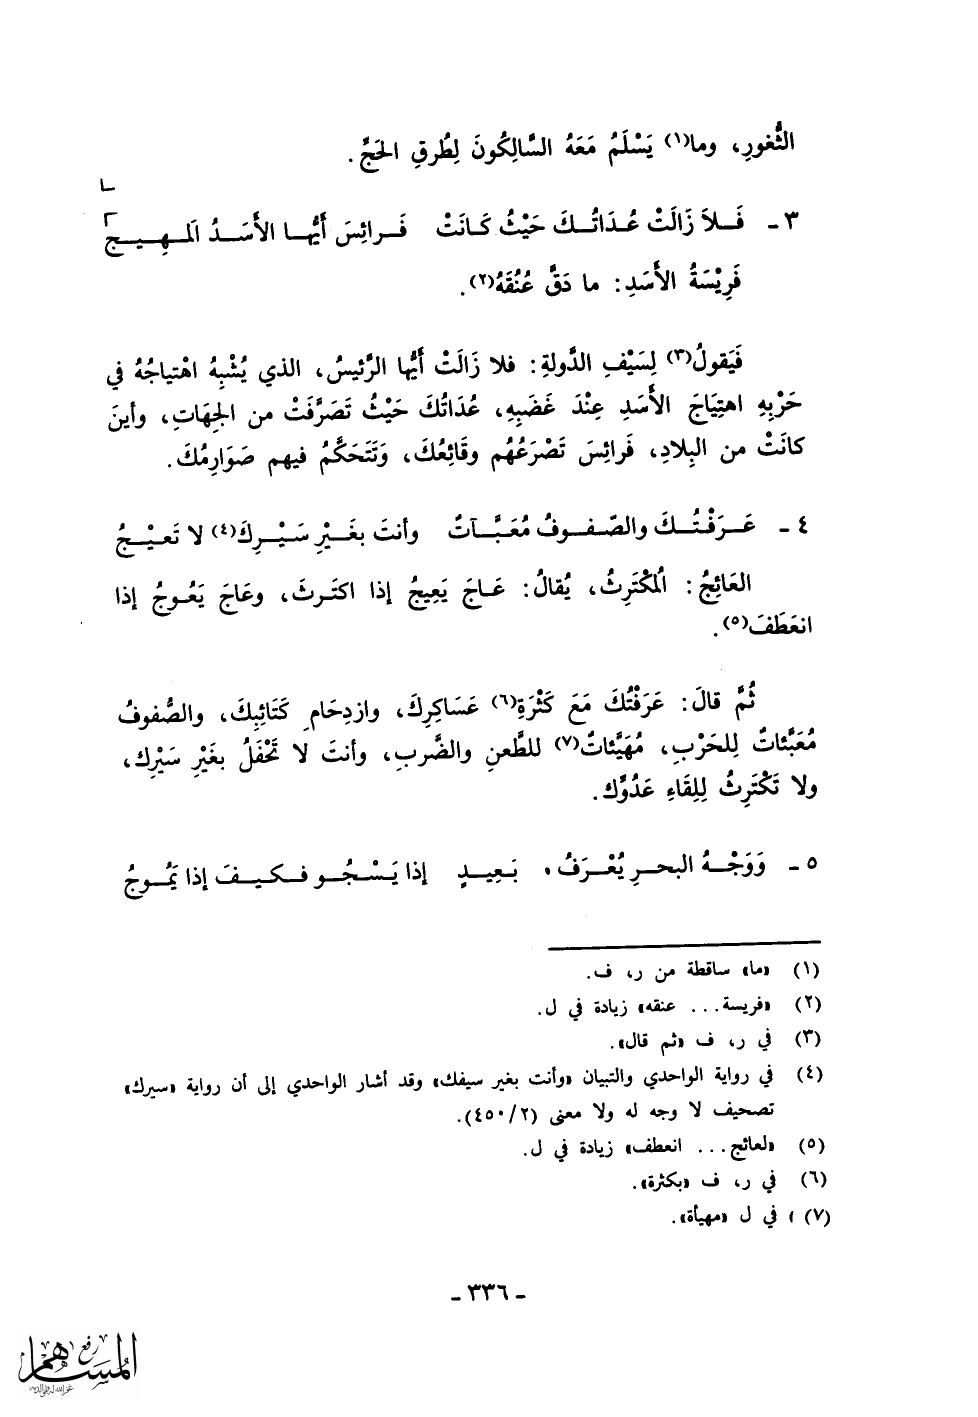 الثُّغورِ، وما(١) يَسْلَمُ مَعَهُ السَّالِكُونَ لِطُرقِ الحَجِّ.
٣ - فَلاَ زَالَتْ عُدَاتُكَ حَيْثُ كَانَتْ فَرائِسَ أَيُّها الأَسَدُ المَهِيج
فَرِيْسَةُ الأَسَدِ: ما دَقَّ عُنُقَهُ(٢).
فَيَقولُ(٣) لِسَيْفِ الدَّولةِ: فلا زَالَتْ أَيُّها الرَّئيسُ، الذي يُشْبِهُ اهْتياجُهُ في
حَرْبِهِ اهتِيَاجَ الأَسَدِ عِنْدَ غَضَبِهِ، عُدَاتُكَ حَيْثُ تَصَرَّفَتْ من الجِهَاتِ، وأينَ
كانَتْ من البِلادِ، فَرائِسَ تَصْرَعُهُم وقَائِعُكَ، وَتَتَحَكَّمُ فيهم صَوَارِمُكَ.
٤ - عَرَفْتُكَ والصّفوفُ مُعَبَّآتٌ وأنتَ بغَيْرِ سَيْرِكَ(٤) لا تَعيْجُ
العَائِجُ: المُكْتَرِثُ، يُقالُ: عَاجَ يَعِيجُ إذا اكتَرثَ، وعَاجَ يَعُوجُ إذا
انعَطَفَ(٥).
ثُمَّ قالَ: عَرَفْتُكَ مَعَ كَثْرَةِ(٦) عَسَاكِرِكَ، وازدِحَامِ كَتَائِبِكَ، والصُّفوفُ
مُعَبَّئاتٌ لِلحَرْبِ، مُهَيَّئاتٌ(٧) للطَّعنِ والضَّربِ، وأنتَ لا تَحْفَلُ بغَيْرِ سَيْرِك،
ولا تَكْتَرِثُ لِلِقَاءِ عَدُوِّك.
٥ - وَوَجْهُ البحرِ يُعْرَفُ . بَعِيدٍ إذا يَسْجُو فكيفَ إذا يَمُوجُ
(١) «ما» ساقطة من ر، ف.
(٢) «فريسة... عنقه» زيادة في ل.
(٣) في ر، ف «ثم قال».
(٤) في رواية الواحدي والتبيان «وأنت بغير سيفك» وقد أشار الواحدي إلى أن رواية «سيرك»
تصحيف لا وجه له ولا معنى (٤٥٠/٢).
(٥) «لعائج... انعطف» زيادة في ل.
(٦) في ر، ف «بكثرة».
(٧) في ل «مهيأة».
- ٣٣٦ -
رفع
المساهم